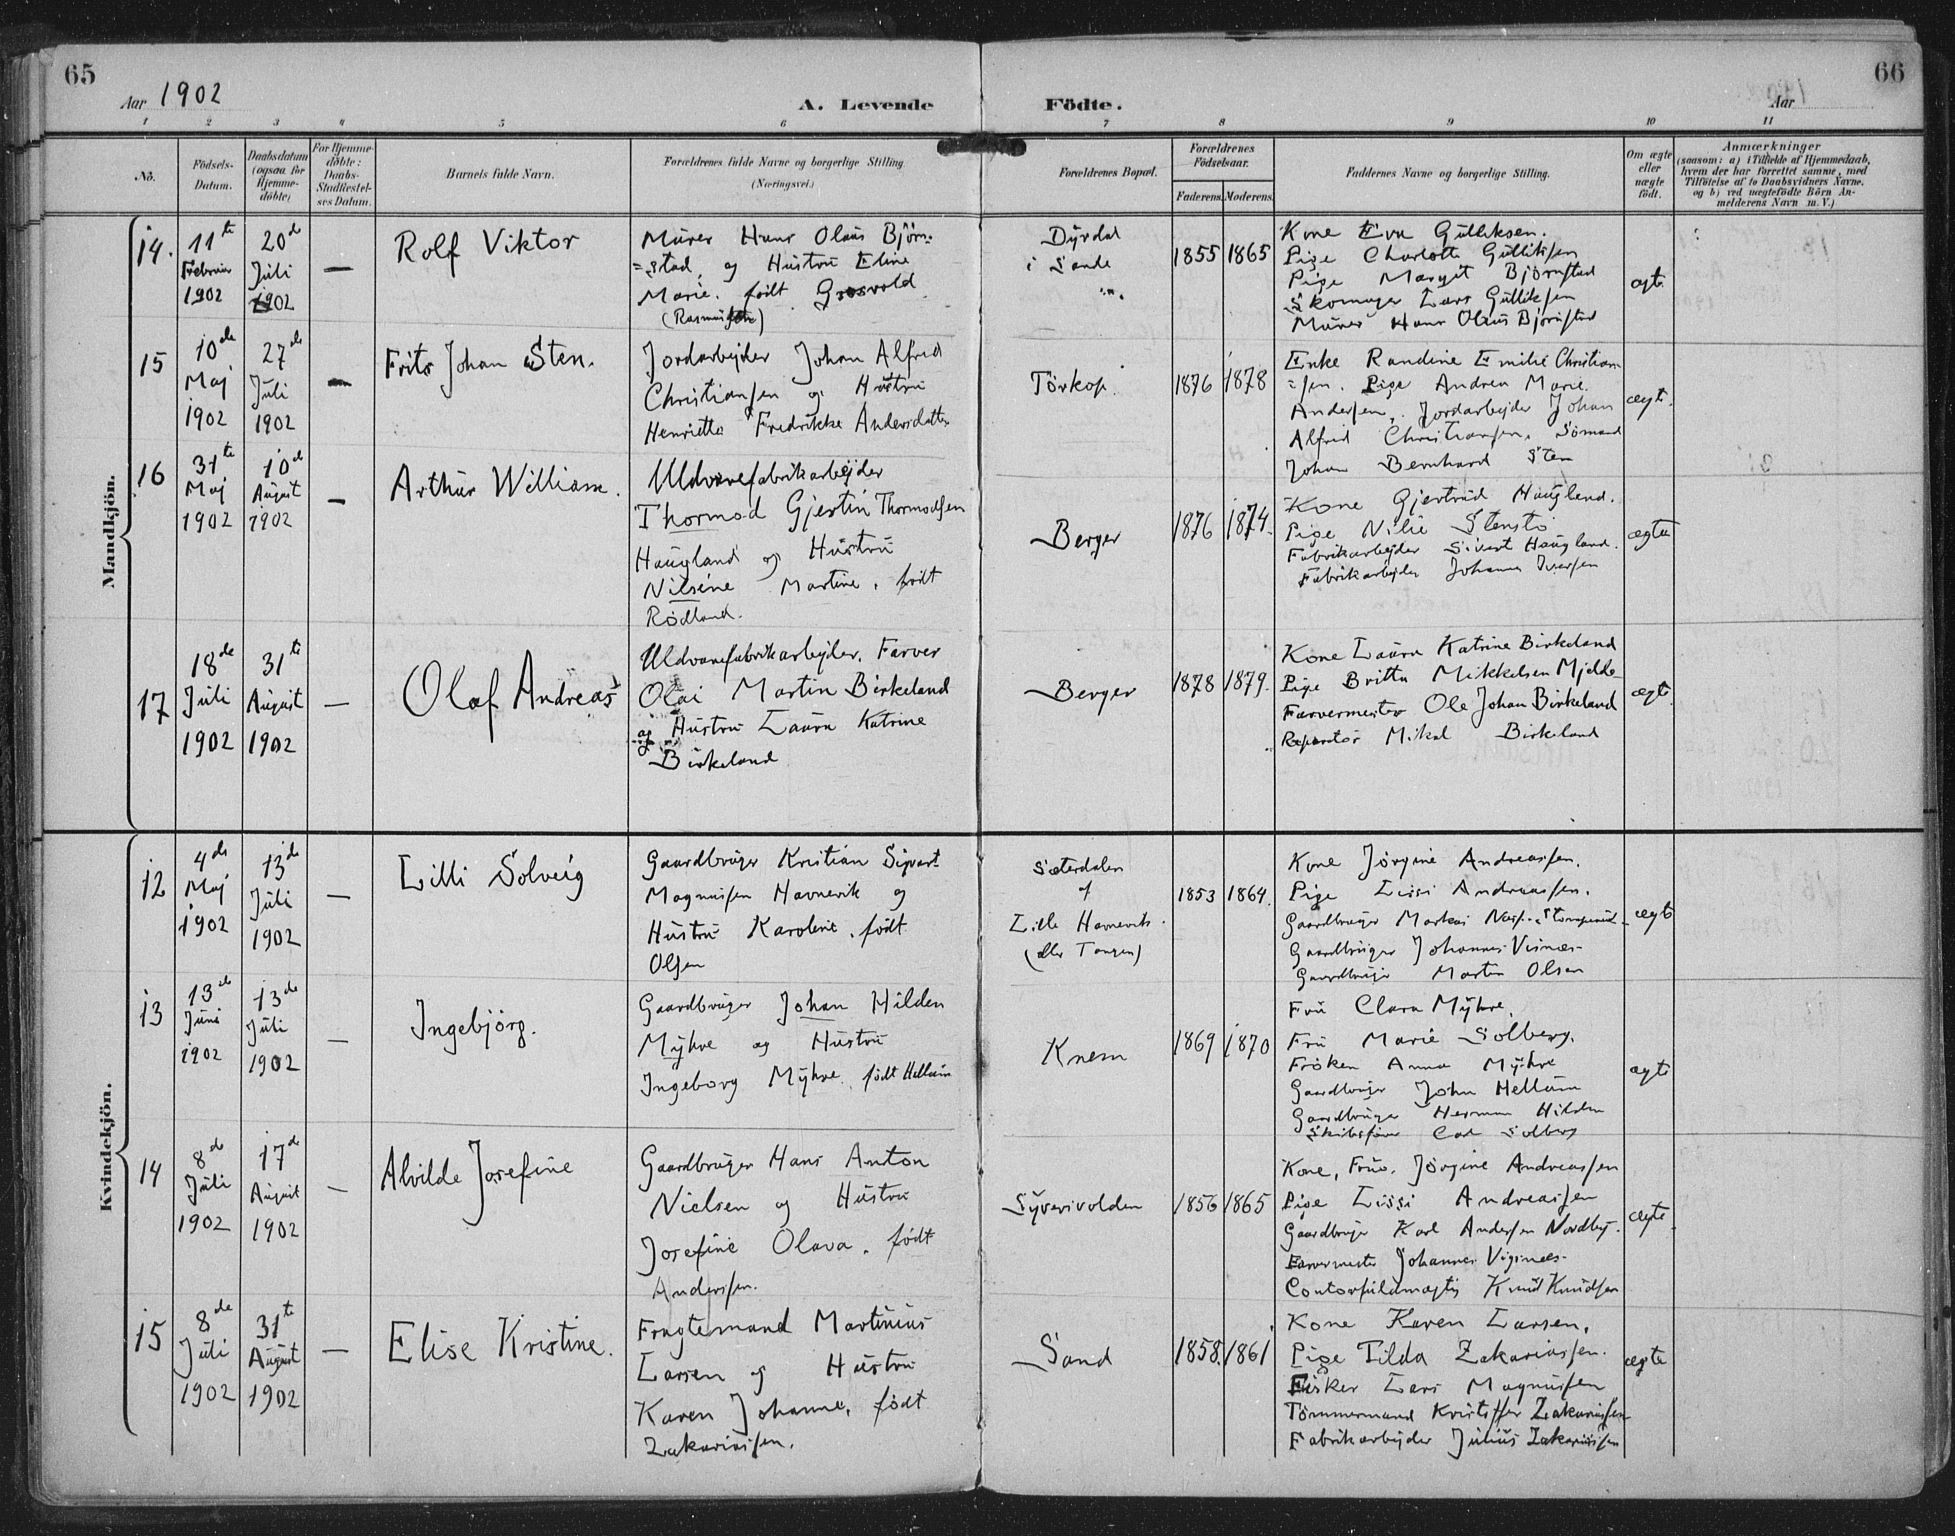 65
66
Aar 1902
A. Levende
Födte.
Aar
1 2 3 4 5 6 7 8 9 10 11
No.
Födsels-
Datum.
Daabsdatum
(ogsaa for
Hjemme-
döbte)
For Hjemme-
döbte:
Daabs-
Stadfæstel-
ses Datum.
Barnets fulde Navn.
Forældrenes fulde Navne og borgerlige Stilling.
(Næringsvei.)
Forældrenes Bopæl.
Forældrenes
Födselsaar.
Faderens. Moderens.
Faddernes Navne og borgerlige Stilling.
Om ægte
eller
uægte
födt.
Anmærkninger
(saasom: a) i Tilfælde af Hjemmedaab,
hvem der har forrettet samme, med
Tilföielse af to Daabsvidners Navne,
og b) ved uægtefödte Börn An-
melderens Navn m. V.)
Mandkjön.
14.
11te
Februar
1902
20de
Juli
1902
—
Rolf Viktor
Murer Hans Olaus Björn-
=stad, og Hustru Eline
Marie, født Grosvold
(Rasmussen)
Dyrdal
i Sande
1855
1865
Kone Eva Gulliksen.
Pige Charlotte Gulliksen
Pige Margit Bjørnstad
Skomager Lars Gulliksen
Murer Hans Olaus Bjørnstad
ægte
15
10de
Maj
1902
27de
Juli
1902
—
Frits Johan Sten.
Jordarbejder Johan Alfred
Christiansen og Hustru
Henriette Fredrikke Andersdatter
Törkop.
1876
1878
Enke Randine Emilie Christian-
=sen. Pige Andrea Marie
Andersen, Jordarbejder Johan
Alfred Christiansen, Sömand
Johan Bernhard Sten
ægte.
16
31te
Maj
1902
10de
August
1902
—
Arthur William.
Uldvarefabrikarbejder
Thormod Gjertin Thormodsen
Haugland og Hustru
Nilsine Martine, født
Rödland.
Berger
1876
1874.
Kone Gjertrud Haugland.
Pige Nilie Stenstö
Fabrikarbejder Sivert Haugland.
Fabrikarbejder Johannes Iversen
ægte
17
18de
Juli
1902
31te
August
1902
—
Olaf Andreas
Uldvarefabrikarbejder, Farver
Olai Martin Birkeland
og Hustru Laura Katrine
Birkeland
Berger
1878
1879.
Kone Laura Katrine Birkeland
Pige Britta Mikkelsen Mjelde
Farvermester Ole Johan Birkeland
Reparatör Mikal Birkeland
ægte
Kvindekjön.
12
4de
Maj
1902
13de
Juli
1902
—
Lilli Solveig
Gaardbruger Kristian Sigvart
Magnussen Havnevik og
Hustru Karoline, født
Olsen
Sæterdalen
af
Lille Havnevik.
(eller Tangen)
1853
1864.
Kone Jörgine Andreassen.
Pige Lissi Andreassen.
Gaardbruger Markus
Gaardbruger Johannes Visnæs
Gaardbruger Martin Olsen
ægte
13
13de
Juni
1902
13de
Juli
1902
—
Ingebjörg.
Gaardbruger Johan Hilden
Myhre og Hustru
Ingeborg Myhre, født Hellum
Knem
1869
1870
Fru Clara Myhre,
Fru Marie Solberg.
Fröken Anna Myhre
Gaardbruger John Hellum
Gaardbruger Herman Hilden
Skibsförer Carl Solberg
ægte
14
8de
Juli
1902
17de
August
1902
—
Alvilde Josefine
Gaardbruger Hans Anton
Nielsen og Hustru
Josefine Olava, født
Anderssen.
Syverivolden
1856
1865
Kone, Frue, Jörgine Andreassen
Pige Lissi Andreassen
Gaardbruger Karl Andersen Nordby.
Farvermester Johannes Vigsnæs
Contorfuldmægtig Knut Knudsen
ægte.
15
8de
Juli
1902
31te
August
1902
—
Elise Kristine.
Fragtemand Martinius
Larsen og Hustru
Karen Johanne, født
Zakariassen.
Sand
1858.
1861
Kone Karen Larsen,
Pige Tilda Zakariassen.
Fisker Lars Magnussen
Tömmermand Kristoffer Zakariassen
Fabrikarbejder Julius Zakariassen
ægte